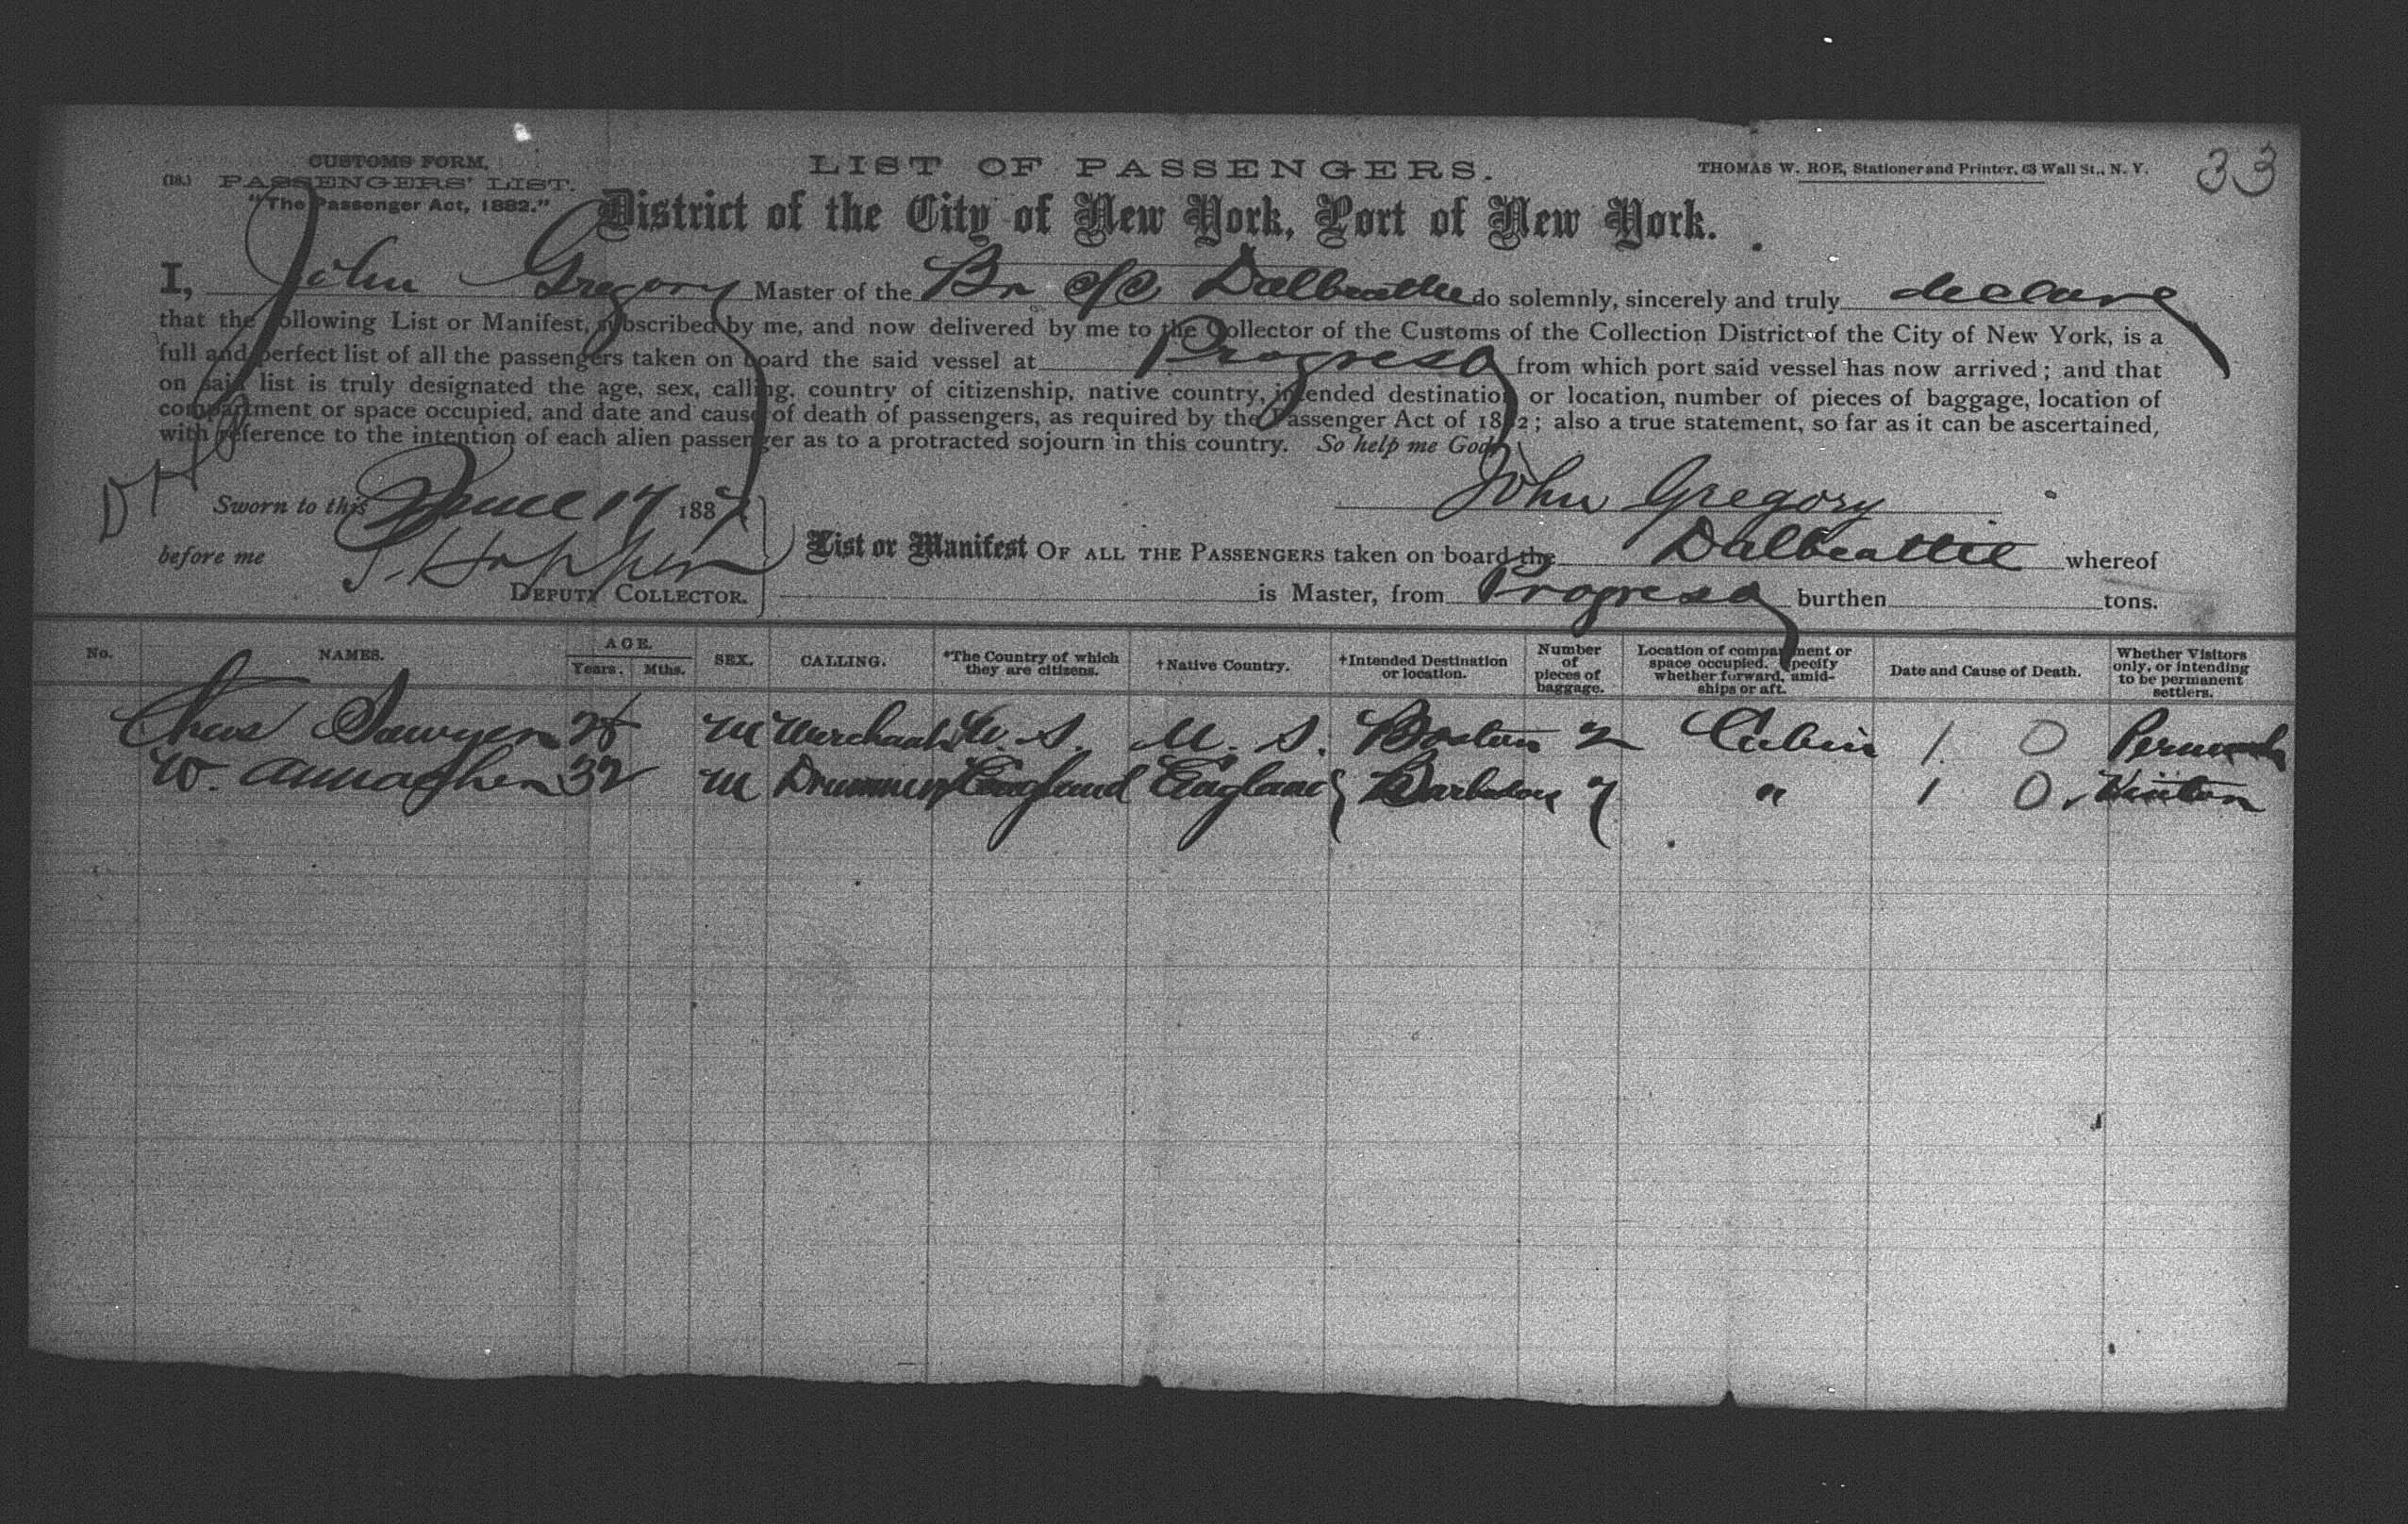 33
CUSTOMS FORM.
(18.) PASSENGERS' LIST.
"The Passenger Act, 1882."
LIST OF PASSENGERS.
THOMAS W. ROE, Stationer and Printer, 63 Wall St., N. Y.
District of the City of New York, Port of New York.
I, John Gregory Master of the Br S/S Dalbeattie do solemnly, sincerely and truly declare
that the following List or Manifest, subscribed by me, and now delivered by me to the Collector of the Customs of the Collection District of the City of New York, is a
full and perfect list of all the passengers taken on board the said vessel at Progreso from which port said vessel has now arrived; and that
on said list is truly designated the age, sex, calling, country of citizenship, native country, intended destination or location, number of pieces of baggage, location of
compartment or space occupied, and date and cause of death of passengers, as required by the Passenger Act of 1882; also a true statement, so far as it can be ascertained,
with reference to the intention of each alien passenger as to a protracted sojourn in this country. So help me God.
Sworn to this June 17 1887 John Gregory
before me
DEPUTY COLLECTOR.
List or Manifest OF ALL THE PASSENGERS taken on board the Dalbeattie whereof
is Master, from Progreso burthen tons.
No. NAMES. AGE. Years. Mths. SEX. CALLING. *The Country of which they are citizens. †Native Country. †Intended Destination or location. Number of pieces of baggage. Location of compartment or space occupied. Specify whether forward, amidships or aft. Date and Cause of Death. Whether Visitors only, or intending to be permanent settlers.
Chas Sawyer M Merchant U. S. U. S. Boston 2 Cabin 1 0
W. 32 M Drummer England England Barbados 7 " 1 0